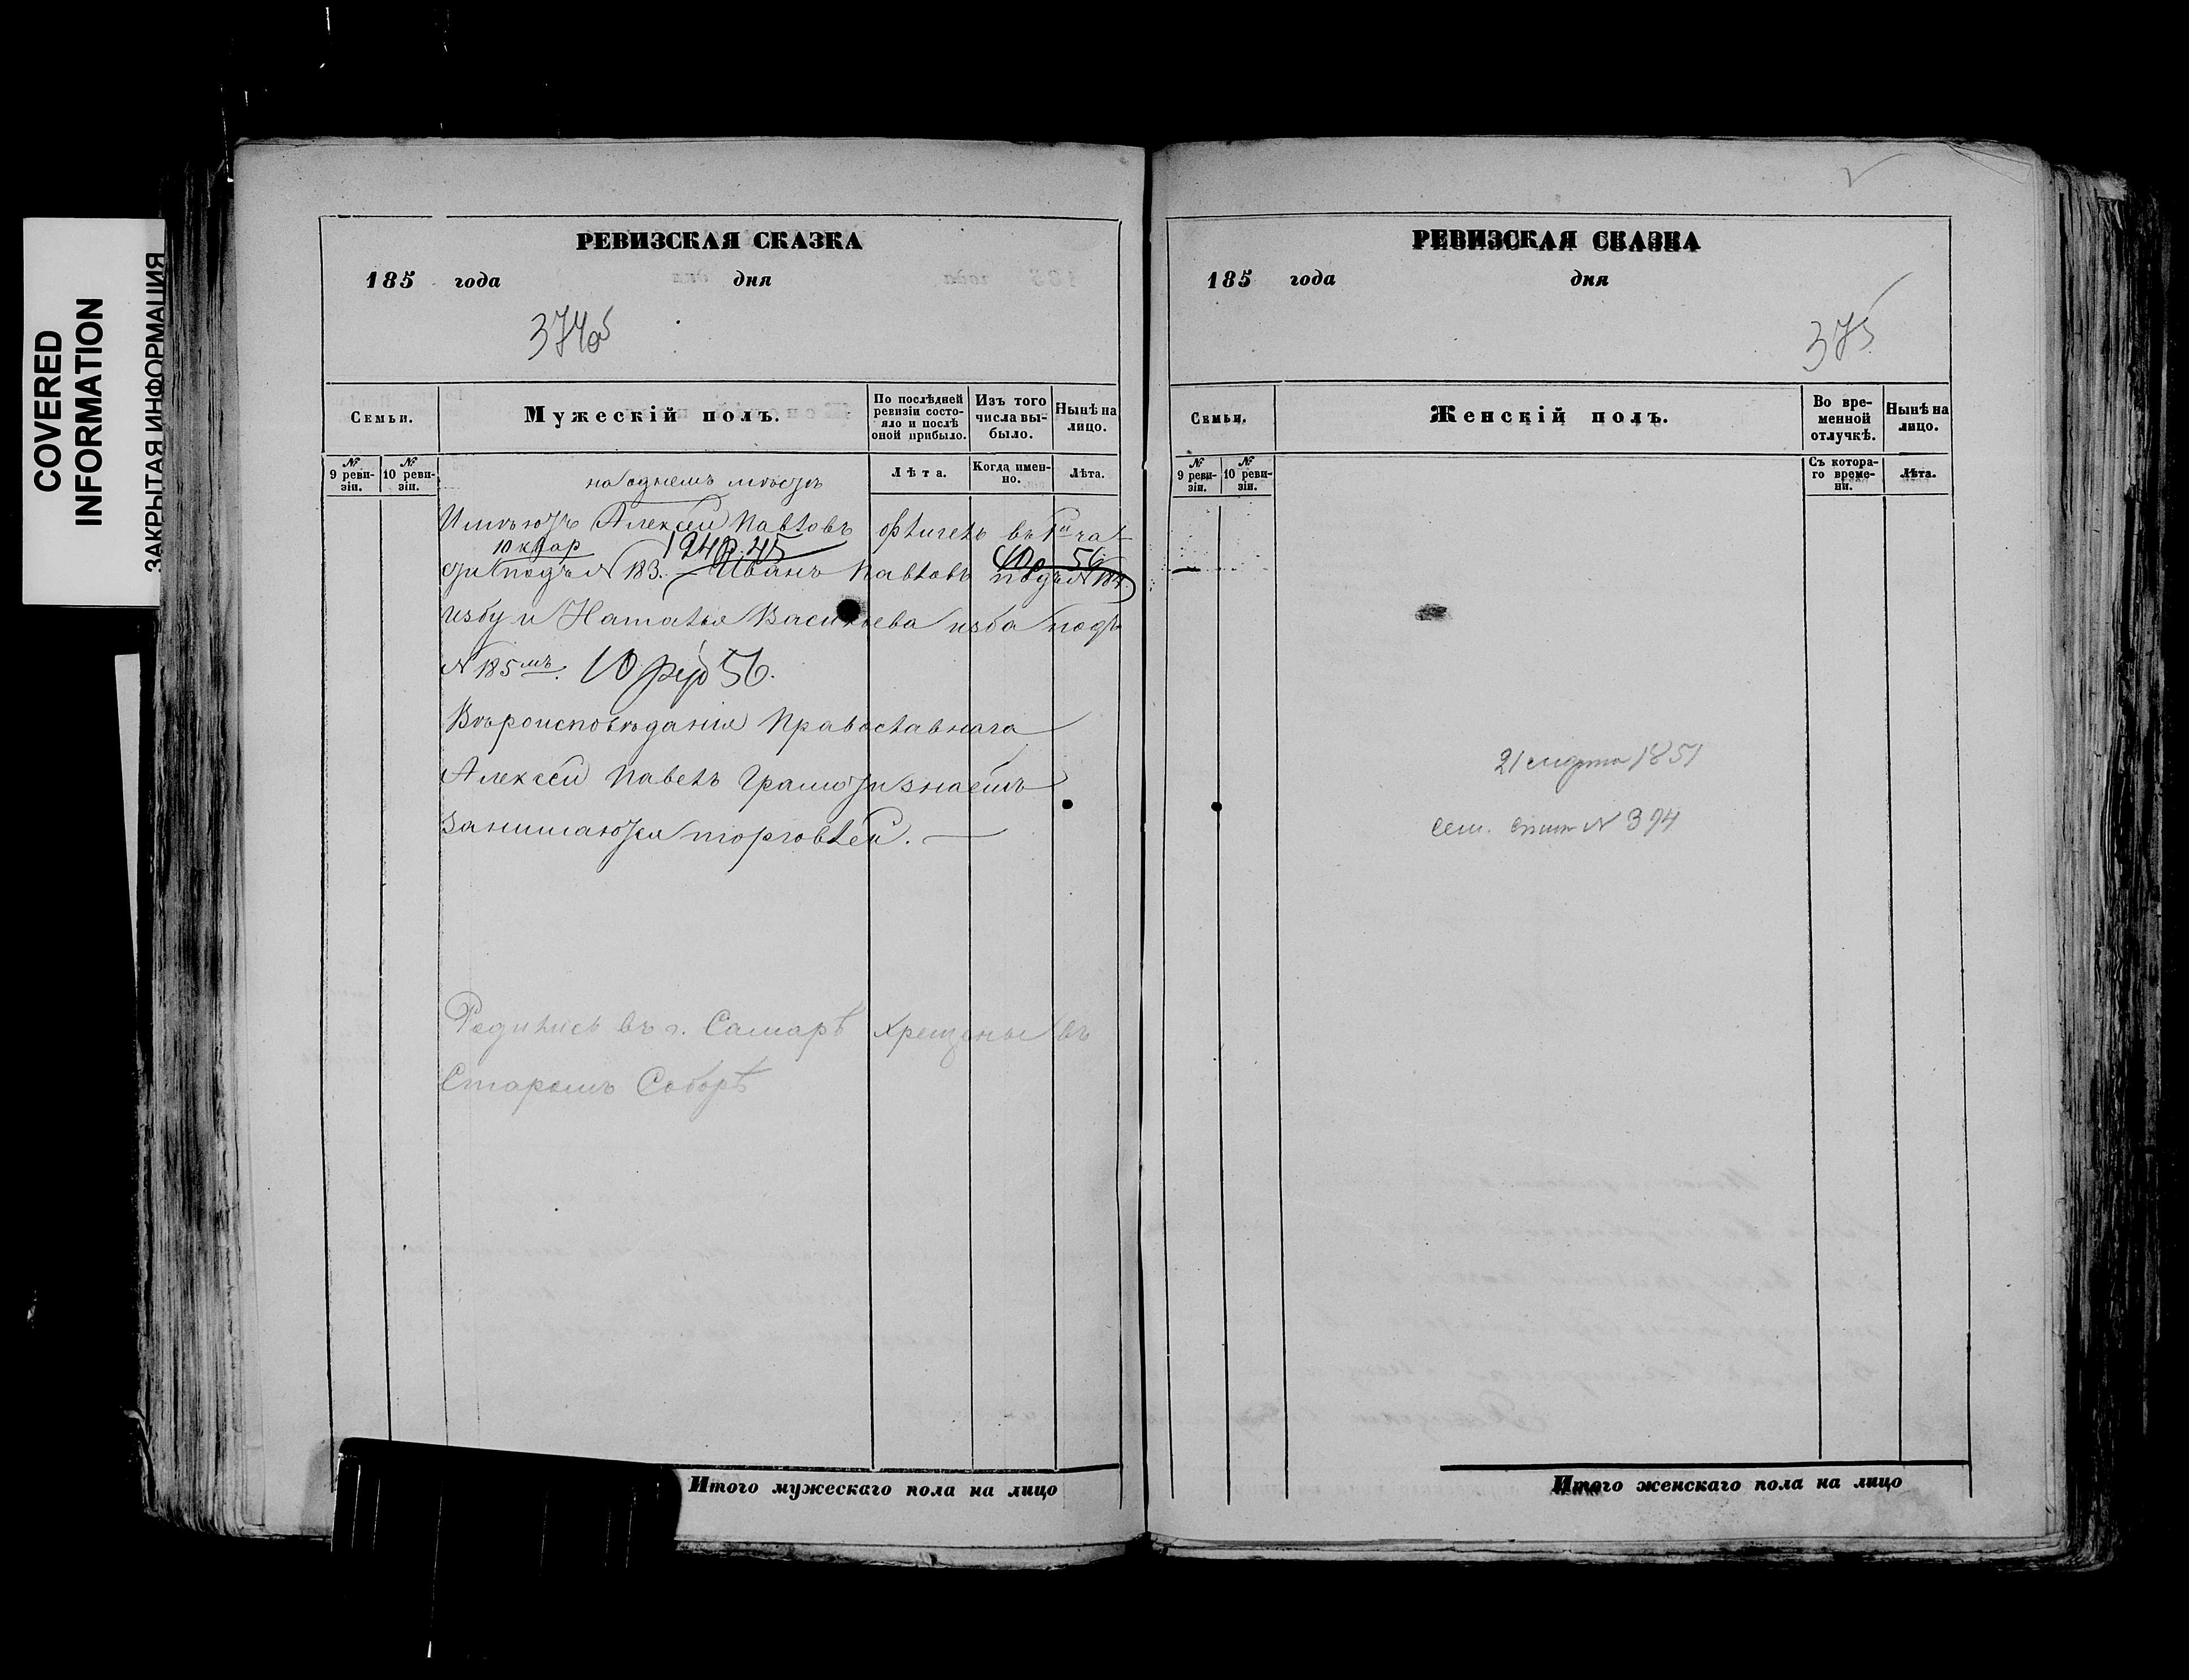 COVERED
INFORMATION
ЗАКРЫТАЯ ИНФОРМАЦИЯ
РЕВИЗСКАЯ СКАЗКА
185 года дня
374об
Семьи.
Мужескій полъ.
По послѣдней ревизіи состояло и послѣ оной прибыло.
Изъ того числа выбыло.
Нынѣ на лицо.
№ 9 ревизіи.
№ 10 ревизіи.
Лѣта.
Когда именно.
Лѣта.
на однемъ мѣстѣ
Имѣютъ Алексей Павловъ флигель въ 1й ча
10 квар 194р. 45 10р 56
сти подъ № 183. – Иванъ Павловъ подъ № 184.
избу и Наталья Васильева изба подъ
№ 185мъ. 10 р 56.
Вѣроисповѣданія Православнаго
Алексей Павелъ Грамоти знаемъ
Занимаются торговлей. —
Родились въ г. Самарѣ крещены въ
Старомъ Соборѣ
Итого мужескаго пола на лицо
РЕВИЗСКАЯ СКАЗКА
185 года дня
375
Семьи.
Женскій полъ.
Во временной отлучкѣ.
Нынѣ на лицо.
№ 9 ревизіи.
№ 10 ревизіи.
Съ котораго времени.
Лѣта.
21 марта 1851
сем. спис № 394
Итого женскаго пола на лицо